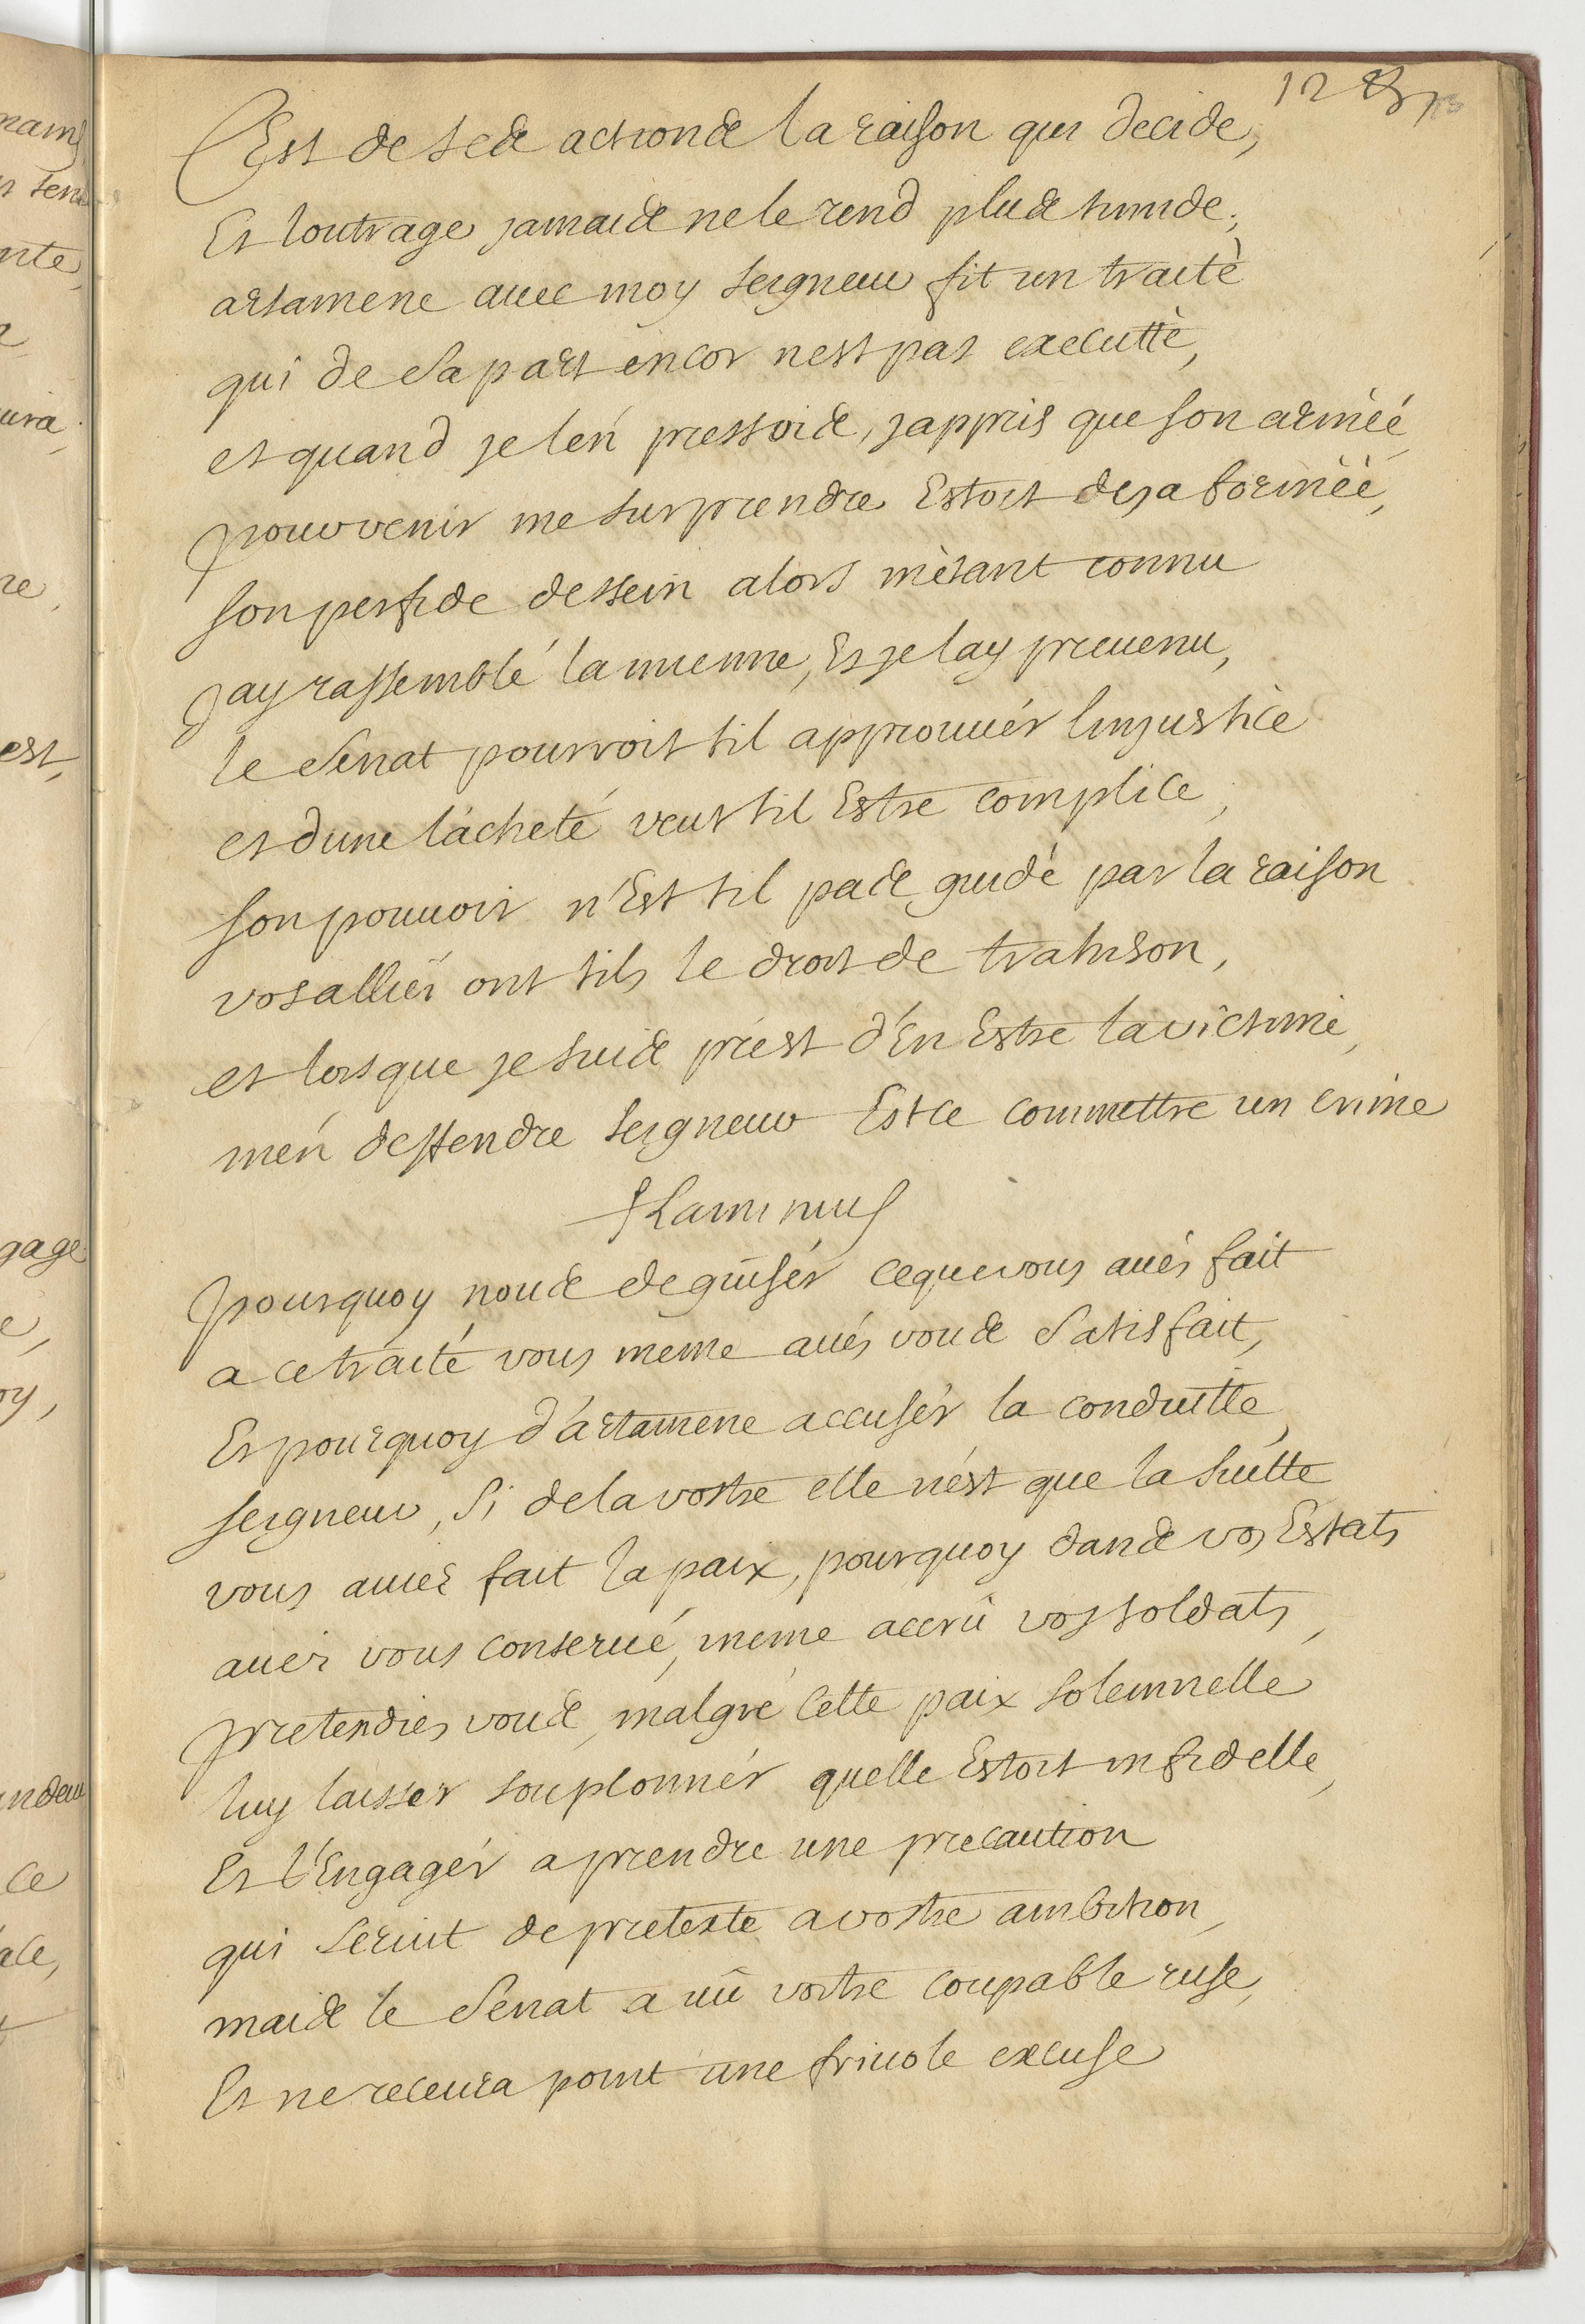 12
Est de ses actions la raison qui decide,
Et loutrage jamais ne le rend plus timide,
artamene avec moy seigneur fit un traité
qui de sa part encor nest pas executté,
et quand je len pressois, jappris que son armèé
pour venir me surprendre Estoit deja formèé,
son perfide dessein alors mètant connu
jay rassemblé la mienne, Et je lay preuenu,
le senat pourroit til approuuér linjustice
et dune làcheté veut til Estre complice,
son pouuoir n'Est til pas guidé par la raison
vos alliéz ont tils le droit de trahison,
et lors que je suis prest d'En Estre la victime,
men deffendre seigneur Est ce commettre un crime
flaminius
pourquoy nous deguisér ce que vous aués fait
a ce traité vous meme aués vous satisfait,
Et pourquoy d'artamene accusér la conduitte,
seigneur, si de la vostre elle nest que la suitte
vous auiez fait la paix, pourquoy dans vos Estats
auez vous conserué, meme accrû vos soldats,
pretendiés vous, malgré cette paix solemnelle
luy laisser soupconnér quelle Estoit infidelle,
Et l'Engagér a prendre une precaution
qui seruit de pretexte a vostre ambition,
mais le senat a uû vostre coupable ruse,
Et ne receura point une friuole excuse